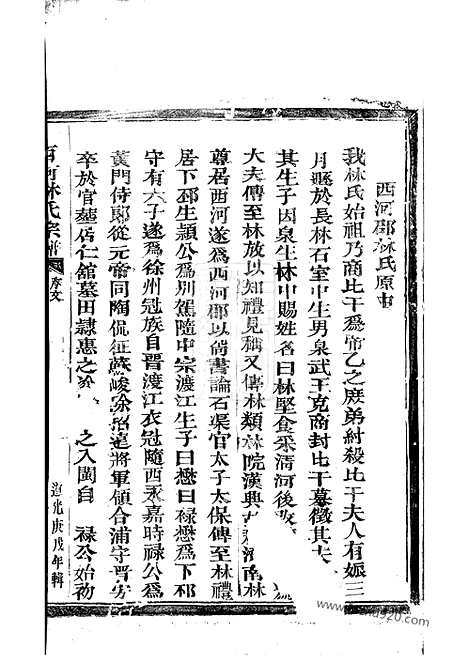 西河郡林氏原由
我林氏始祖乃商比干爲帝乙之庶弟紂殺比干夫人有娠三
月逃於長林石室中生男泉武王克商封比干墓徵其夫
其生子因泉生林中賜姓名曰林堅食采清河後改
大夫傳至林放以知禮見稱又傳林類林院漢興 濟南林
尊居西河遂爲西河郡以尚書論石渠官太子太保傳至林禮
居下邳生顥公爲別駕隨中宗渡江生子曰懋曰祿懋爲下邳
守有六子遂爲徐州冠族自晋渡江衣冠隨西永嘉時祿公爲
黃門侍郎從元帝同陶侃征蘇峻徐招遠將軍領合浦守晋安
卒於官塟居仁舘墓田隷惠之 之入閩自 祿公始初
道光庚戌年輯
西河林氏宗譜 序文
www.book520.com